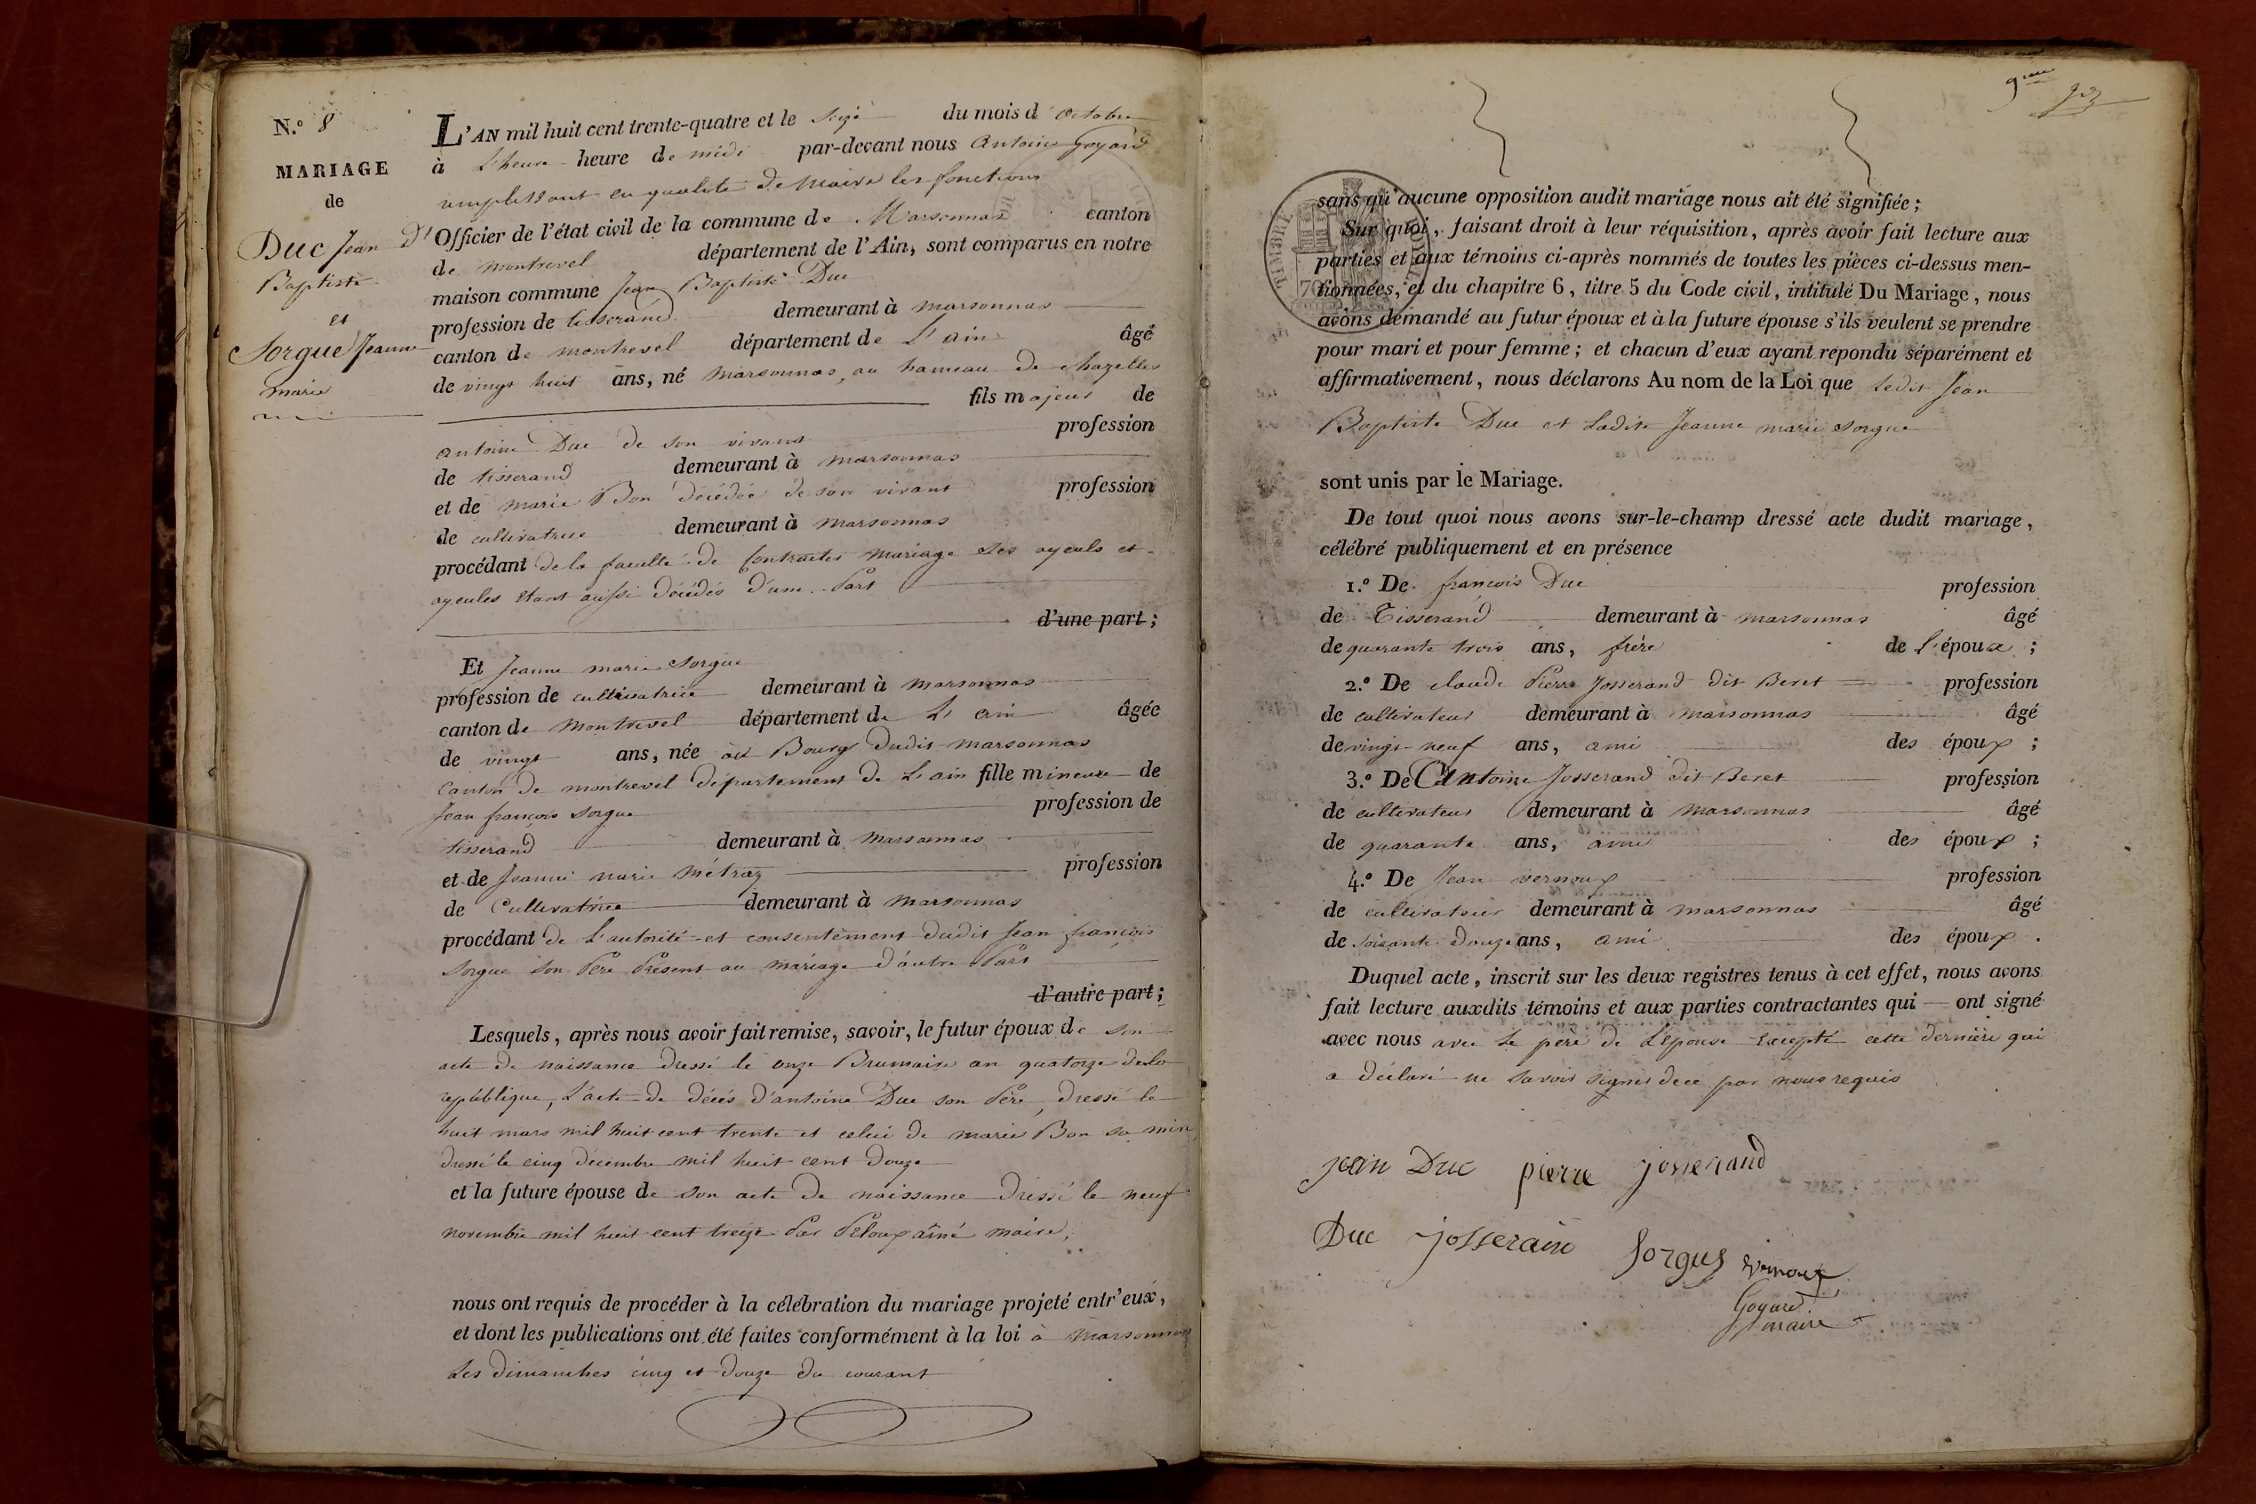 N.º 8
MARIAGE
de
Duc Jean
Baptiste
et
Sorgue Jeanne
marie
L'AN mil huit cent trente-quatre et le seize du mois d'octobre
à l'heure heure de midi par-devant nous Antoine Goyard
remplissant en qualité de Maire les fonctions
d'Officier de l'état civil de la commune de Marsonnas canton
de montrevel département de l'Ain, sont comparus en notre
maison commune Jean Baptiste Duc
profession de tisserand demeurant à marsonnas
canton de montrevel département de L'ain âgé
de vingt huit ans, né marsonnas, au hameau de chazelles
fils majeur de
antoine Duc de son vivant profession
de tisserand demeurant à marsonnas
et de marie Bon décédée de son vivant profession
de cultivatrice demeurant à marsonnas
procédant de la faculté de contracter mariage ses ayeuls et
ayeules étant aussi décédés d'une Part
d'une part ;
Et Jeanne marie Sorgue
profession de cultivatrice demeurant à marsonnas
canton de Montrevel département de L'ain âgée
de vingt ans, née au Bourg dudit marsonnas
canton de montrevel département de L'ain fille mineure de
Jean françois Sorgue profession de
tisserand demeurant à marsonnas
et de Jeanne marie Métraz profession
de Cultivatrice demeurant à marsonnas
procédant de L'autorité et consentement dudit Jean françois
Sorgue son Père Présent au mariage d'autre Part
d'autre part ;
Lesquels, après nous avoir fait remise, savoir, le futur époux de son
acte de naissance dressé le onze Brumaire an quatorze de la
république, L'acte de décès d'antoine Duc son Père, dressé le
huit mars mil huit cent trente et celui de marie Bon sa mère
dressé le cinq décembre mil huit cent douze
et la future épouse de son acte de naissance dressé le neuf
novembre mil huit cent treize Par Peloux aîné maire,
nous ont requis de procéder à la célébration du mariage projeté entr'eux,
et dont les publications ont été faites conformément à la loi à Marsonnas
Les dimanches cinq et douze du courant
9eme
sans qu'aucune opposition audit mariage nous ait été signifiée ;
Sur quoi, faisant droit à leur réquisition, après avoir fait lecture aux
parties et aux témoins ci-après nommés de toutes les pièces ci-dessus men-
tionnées, et du chapitre 6, titre 5 du Code civil, intitulé Du Mariage, nous
avons demandé au futur époux et à la future épouse s'ils veulent se prendre
pour mari et pour femme ; et chacun d'eux ayant repondu séparément et
affirmativement, nous déclarons Au nom de la Loi que Ledit Jean
Baptiste Duc et Ladite Jeanne marie Sorgue
sont unis par le Mariage.
De tout quoi nous avons sur-le-champ dressé acte dudit mariage,
célébré publiquement et en présence
1.º De françois Duc profession
de Tisserand demeurant à marsonnas âgé
de quarante trois ans, frère de l'époux ;
2.º De claude Pierre Josserand dit Beret profession
de cultivateur demeurant à marsonnas âgé
de vingt-neuf ans, ami des époux ;
3.º De Antoine Josserand dit Beret profession
de cultivateur demeurant à marsonnas âgé
de quarante ans, ami des époux ;
4.º De Jean vernoux profession
de cultivateur demeurant à marsonnas âgé
de soixante-douze ans, ami des époux .
Duquel acte, inscrit sur les deux registres tenus à cet effet, nous avons
fait lecture auxdits témoins et aux parties contractantes qui ont signé
avec nous avec le père de L'épouse excepté cette dernière qui
a déclaré ne savoir signer de ce par nous requis
jean Duc pierre josserand
Duc josserand Sorgue vernoux
Goyard
maire
TIMBRE ROYAL